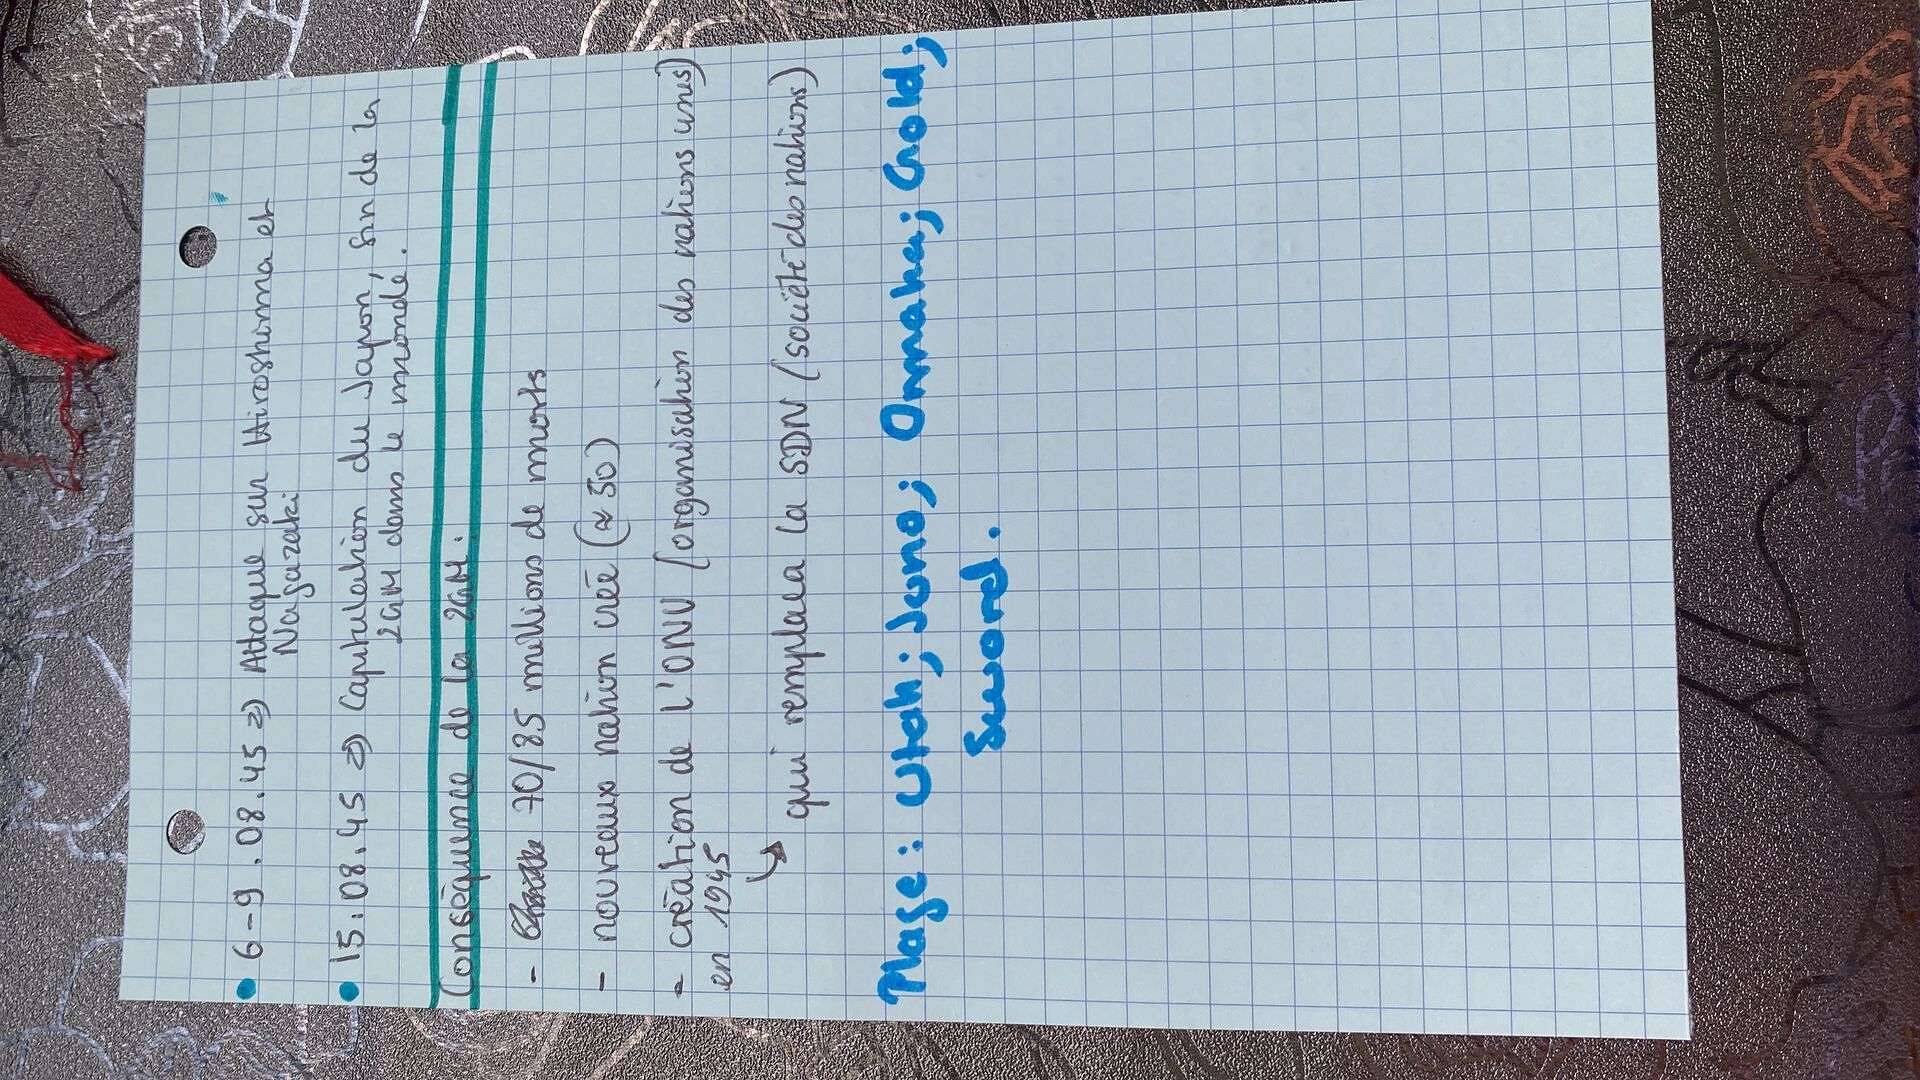 6-9.08.45 => Attaque sur Hiroshima et
Nagazaki
15.08.45 => Capitulation du Japon, fin de la
2GM dans le monde.
Conséquence de la 2GM.
- 70/85 millions de morts
- nouveaux nation crée (≈ 50)
- création de l'ONU (organisation des nations unis)
en 1945
↳ qui remplaca la SDN (société des nations)
Plage : Utah ; Juno ; Ommaha ; Gold ;
Sword.